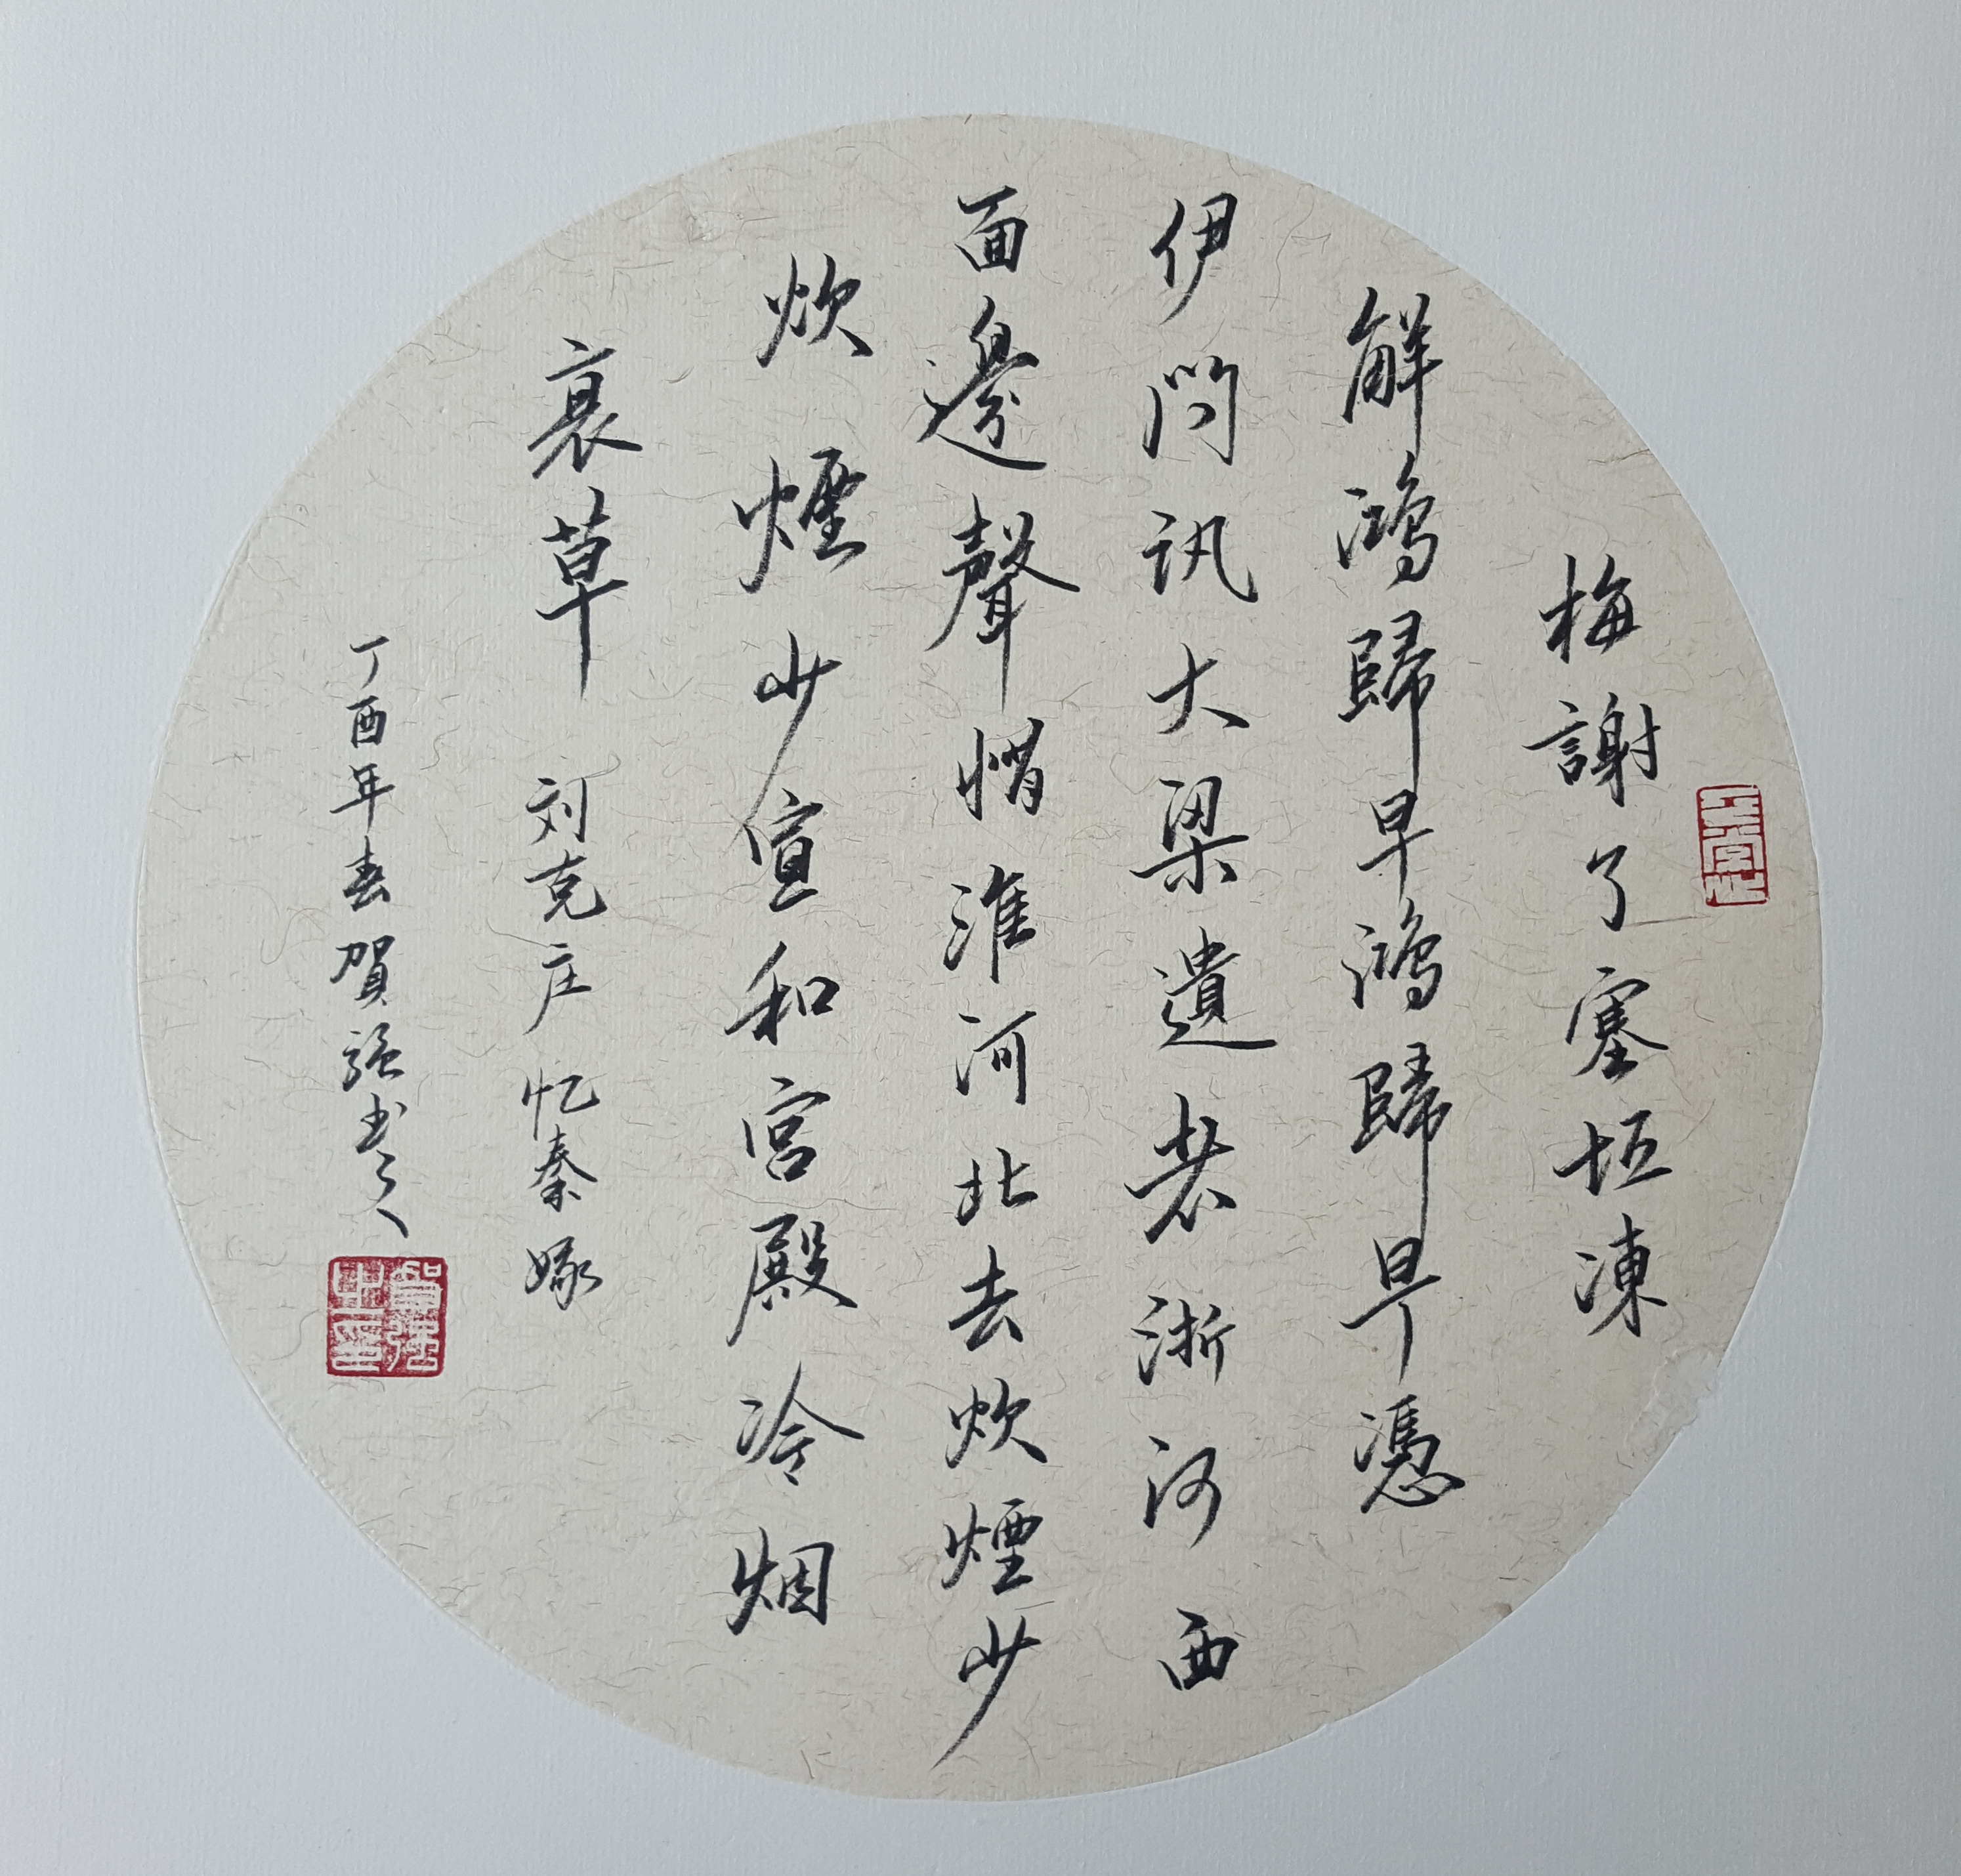 梅謝了塞垣凍
解鸿歸早鸿歸早憑
伊问訊大梁遺老浙河西
面邊聲悄淮河北去炊煙少
炊煙少宣和宮殿冷烟
衰草 刘克庄 忆秦娥
丁酉年春賀强书之
賀强之印